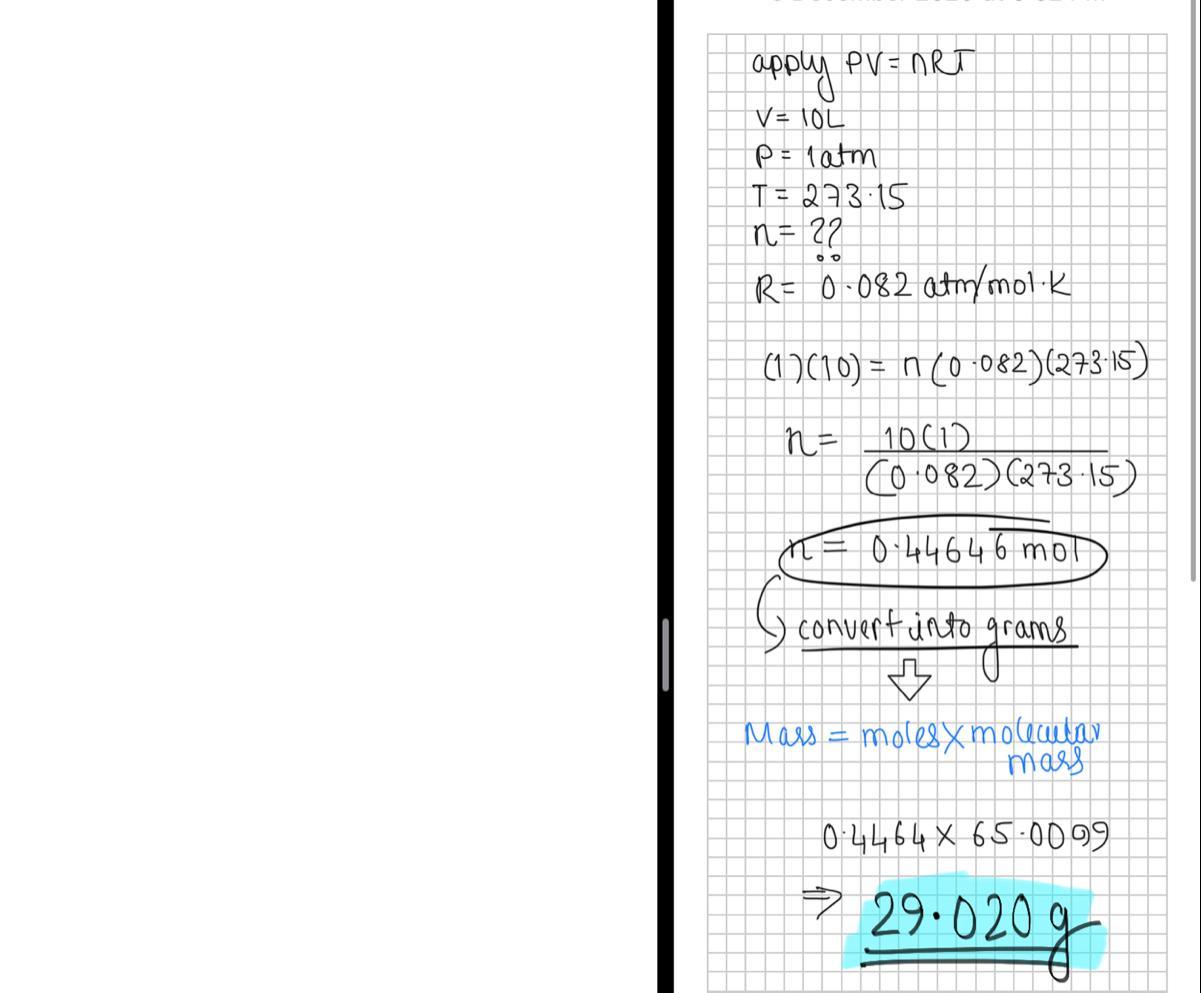 apply PV = nRT
V = 10L
P = 1atm
T = 273.15
n = ??
R = 0.082 atm/mol.K
(1)(10) = n(0.082)(273.15)
n = 10(1)
(0.082)(273.15)
n = 0.44646 mol
convert into grams
Mass = moles × molecular
mass
0.4464 × 65.0099
⇒ 29.020 g